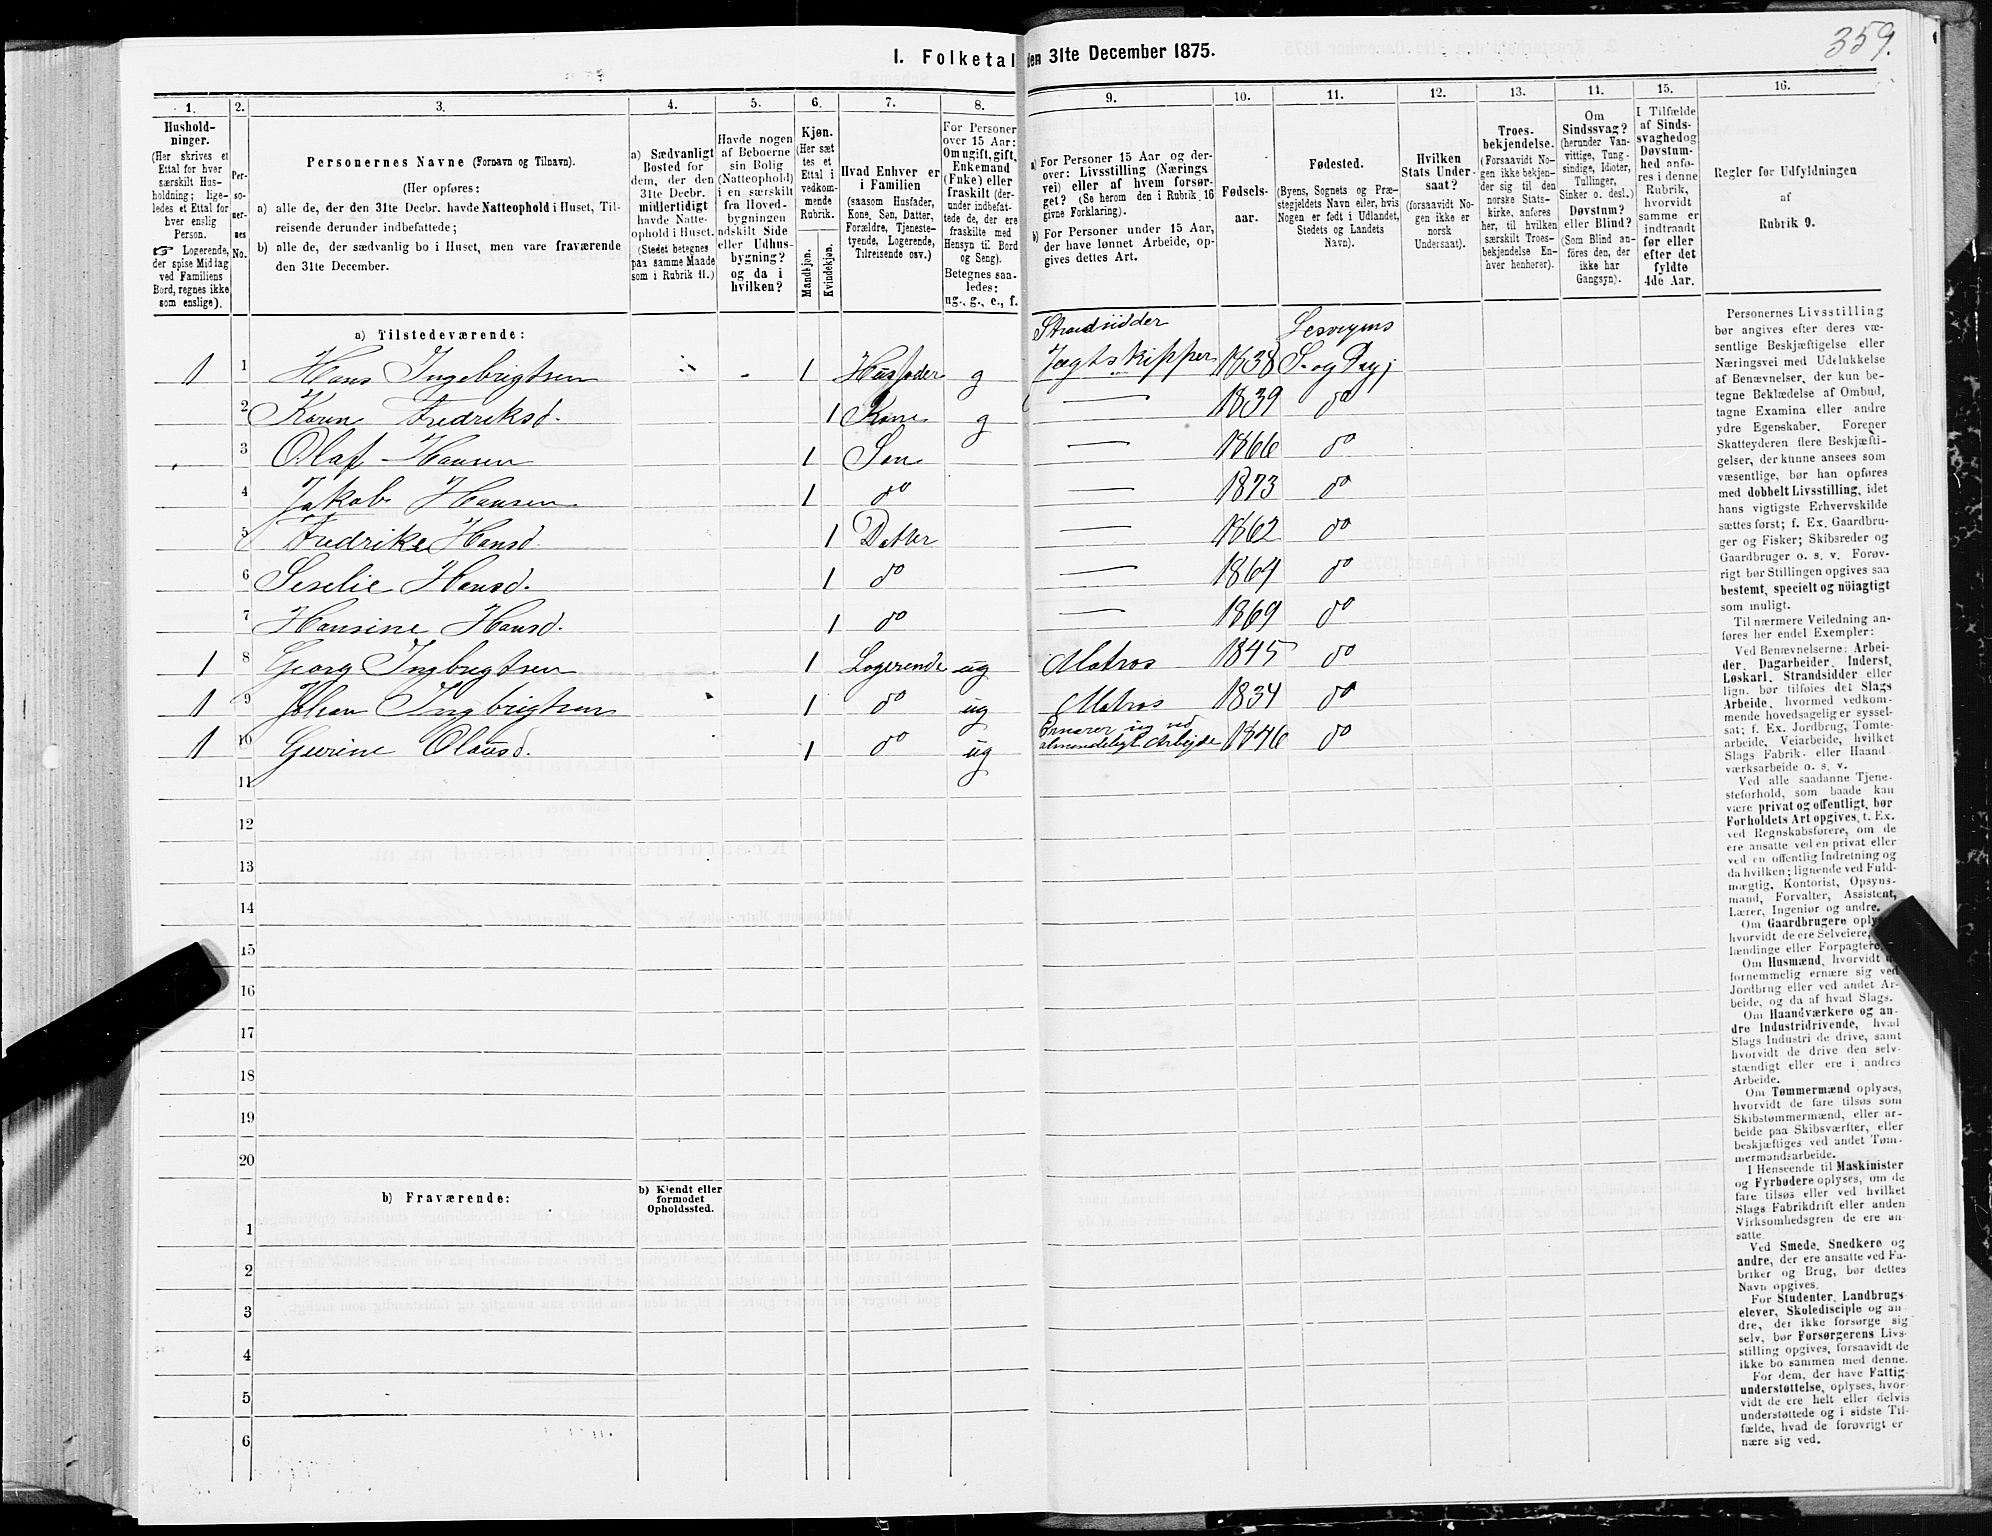 359.
I. Folketal den 31te December 1875.
1.
2.
3.
4.
5.
6.
7.
8.
9.
10.
11.
12.
13.
11.
15.
16.
Hushold-
ninger.
(Her skrives et
Ettal for hver
særskilt Hus-
holdning; lige-
ledes et Ettal for
hver enslig
Person.
☞ Logerende,
der spise Middag
ved Familiens
Bord, regnes ikke
som enslige).
Per-
so-
ner-
nes
No.
Personernes Navne (Fornavn og Tilnavn).
(Her opføres:
a) alle de, der den 31te Decbr. havde Natteophold i Huset, Til-
reisende derunder indbefattede;
b) alle de, der sædvanlig bo i Huset, men vare fraværende
den 31te December.
a) Sædvanligt
Bosted for
dem, der den
31te Decbr.
midlertidigt
havde Natte-
ophold i Huset.
(Stedet betegnes
paa samme Maade
som i Rubrik 11.)
Havde nogen
af Beboerne
sin Bolig
(Natteophold)
i en særskilt
fra Hoved-
bygningen
adskilt Side
eller Udhus-
bygning?
og da i
hvilken?
Kjøn.
(Her sæt
tes et
Ettal i
vedkom-
mende
Rubrik.
Mandkjøn.
Kvindekjøn.
Hvad Enhver er
i Familien
(saasom Husfader,
Kone, Søn, Datter,
Forældre, Tjeneste-
tyende, Logerende,
Tilreisende osv.)
For Personer
over 15 Aar:
Om ugift, gift,
Enkemand
(Enke) eller
fraskilt (der-
under indbefat-
tede de, der ere
fraskilte med
Hensyn til Bord
og Seng).
Betegnes saa-
ledes:
ug., g., e., f.
a) For Personer 15 Aar og der-
over: Livsstilling (Nærings
vei) eller af hvem forsør-
get? (Se herom den i Rubrik 16
givne Forklaring).
b) For Personer under 15 Aar,
der have lønnet Arbeide, op-
gives dettes Art.
Fødsels-
aar.
Fødested.
(Byens, Sognets og Præ-
stegjeldets Navn eller, hvis
Nogen er født i Udlandet,
Stedets og Landets
Navn).
Hvilken
Stats Under-
saat?
(forsaavidt No-
gen ikke er
norsk
Undersaat).
Troes-
bekjendelse.
(Forsaavidt No-
gen ikke bekjen-
der sig til den
norske Stats-
kirke, anføres
her, til hvilken
særskilt Troes-
bekjendelse En-
hver henhører).
Om
Sindssvag?
(herunder Van-
vittige, Tung-
sindige, Idioter,
Tullinger,
Sinker o. desl.)
Døvstum?
eller Blind?
(Som Blind an-
føres den, der
ikke har
Gangsyn).
I Tilfælde
af Sinds-
svaghed og
Døvstum-
hed anfø-
res i denne
Rubrik,
hvorvidt
samme er
indtraadt
før eller
efter det
fyldte
4de Aar.
Regler for Udfyldningen
af
Rubrik 9.
a) Tilstedeværende:
Strandsidder Lesvigens
1 1 Hans Ingebrigtsen 1 Husfader g Jagtskipper 1838 S. og Prgj
2 Karen Fredriksd. 1 Kone g — 1839 do
3 Olaf Hansen 1 Søn — 1866 do
4 Jakob Hansen 1 do — 1873 do
5 Fredrike Hansd. 1 Datter — 1862 do
6 Seselie Hansd. 1 do — 1864 do
7 Hansine Hansd. 1 do — 1869 do
1 8 Georg Ingbrigtsen 1 Logerende ug Matros 1845 do
1 9 Johan Ingbrigtsen 1 do ug Matros 1834 do
1 10 Gurine Olausd. 1 do ug Ernærer sig ved almindeligt Arbejde 1846 do
11
12
13
14
15
16
17
18
19
20
b) Fraværende:
b) Kjendt eller
formodet
Opholdssted.
1
2
3
4
5
6
Personernes Livsstilling
bør angives efter deres væ-
sentlige Beskjæftigelse eller
Næringsvei med Udelukkelse
af Benævnelser, der kun be-
tegne Beklædelse af Ombud,
tagne Examina eller andre
ydre Egenskaber. Forener
Skatteyderen flere Beskjæfti-
gelser, der kunne ansees som
væsentlige, bør han opføres
med dobbelt Livsstilling, idet
hans vigtigste Erhvervskilde
sættes først; f. Ex. Gaardbru-
ger og Fisker; Skibsreder og
Gaardbruger o. s. v. Forøv-
rigt bør Stillingen opgives saa
bestemt, specielt og nöiagtigt
som muligt.
Til nærmere Veiledning an-
føres her endel Exempler:
Ved Benævnelserne: Arbei-
der, Dagarbeider, Inderst,
Løskarl, Strandsidder eller
lign. bør tilføies det Slags
Arbeide, hvormed vedkom-
mende hovedsagelig er syssel-
sat; f. Ex. Jordbrug, Tomte-
arbeide, Veiarbeide, hvilket
Slags Fabrik- eller Haand-
værksarbeide o. s. v.
Ved alle saadanne Tjene-
steforhold, som baade kan
være privat og offentligt, bør
Forholdets Art opgives, t. Ex.
ved Regnskabsførere, om de
ere ansatte ved en privat eller
ved en offentlig Indretning og
da hvilken; lignende ved Fuld-
mægtig, Kontorist, Opsyns-
mand, Forvalter, Assistent,
Lærer, Ingeniør og andre.
Om Gaardbrugere oplys
hvorvidt de ere Selveiere,
lændinge eller Forpagtere,
Om Husmænd, hvorvidt
fornemmelig ernære sig ved
Jordbrug eller ved andet Ar-
beide, og da af hvad Slags.
Om Haandværkere og an-
dre Industridrivende, hvad
Slags Industri de drive, samt
hvorvidt de drive den selv-
stændigt eller ere i andres
Arbeide.
Om Tømmermænd oplyses,
hvorvidt de fare tilsøs som
Skibstømmermænd, eller ar-
beide paa Skibsværfter, eller
beskjæftiges ved andet Tøm-
mermandsarbeide.
I Henseende til Maskinister
og Fyrbødere oplyses, om de
fare tilsøs eller ved hvilket
Slags Fabrikdrift eller anden
Virksomhedsgren de ere an-
satte.
Ved Smede, Snedkere og
andre, der ere ansatte ved Fa-
briker og Brug, bør dettes
Navn opgives.
For Studenter, Landbrugs-
elever, Skoledisciple og an-
dre, der ikke forsørge sig
selv, bør Forsørgerens Livs-
stilling opgives, forsaavidt de
ikke bo sammen med denne.
For dem, der have Fattig-
understøttelse, oplyses, hvor-
vidt de ere helt eller delvis
understøttede og i sidste Til-
fælde, hvad de forøvrigt er
nære sig ved.